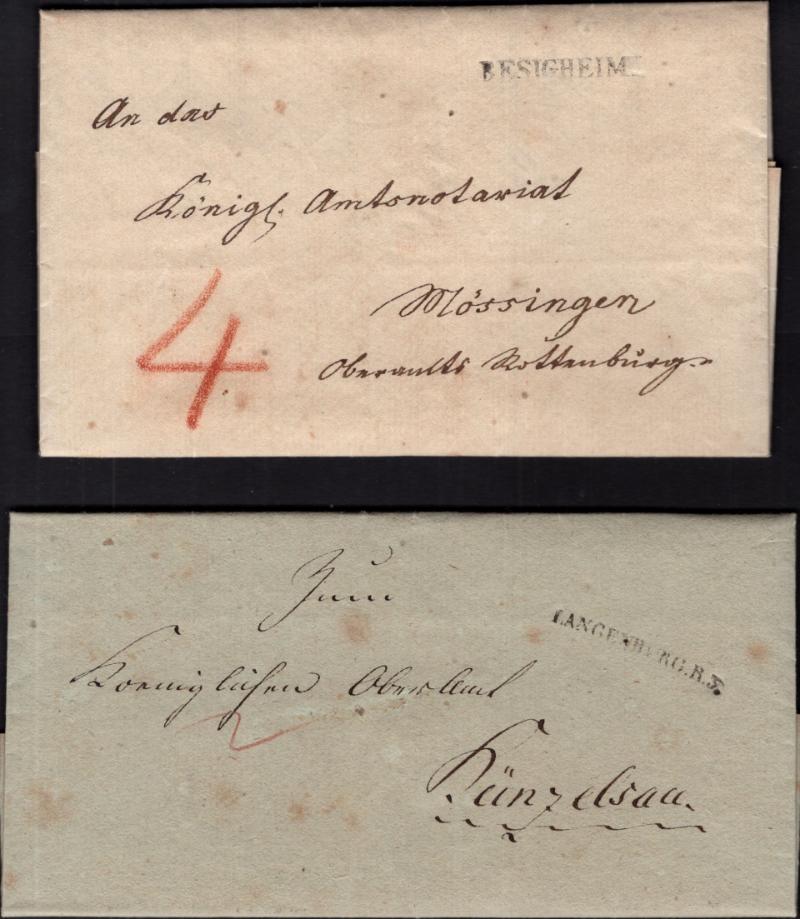 BESIGHEIM
An das
Königl. Amtsnotariat
4
Mössingen
Oberamts Rottenburg.
Zum
LANGENBURG.R.3.
Koeniglichen OberAmt
Künzelsau.